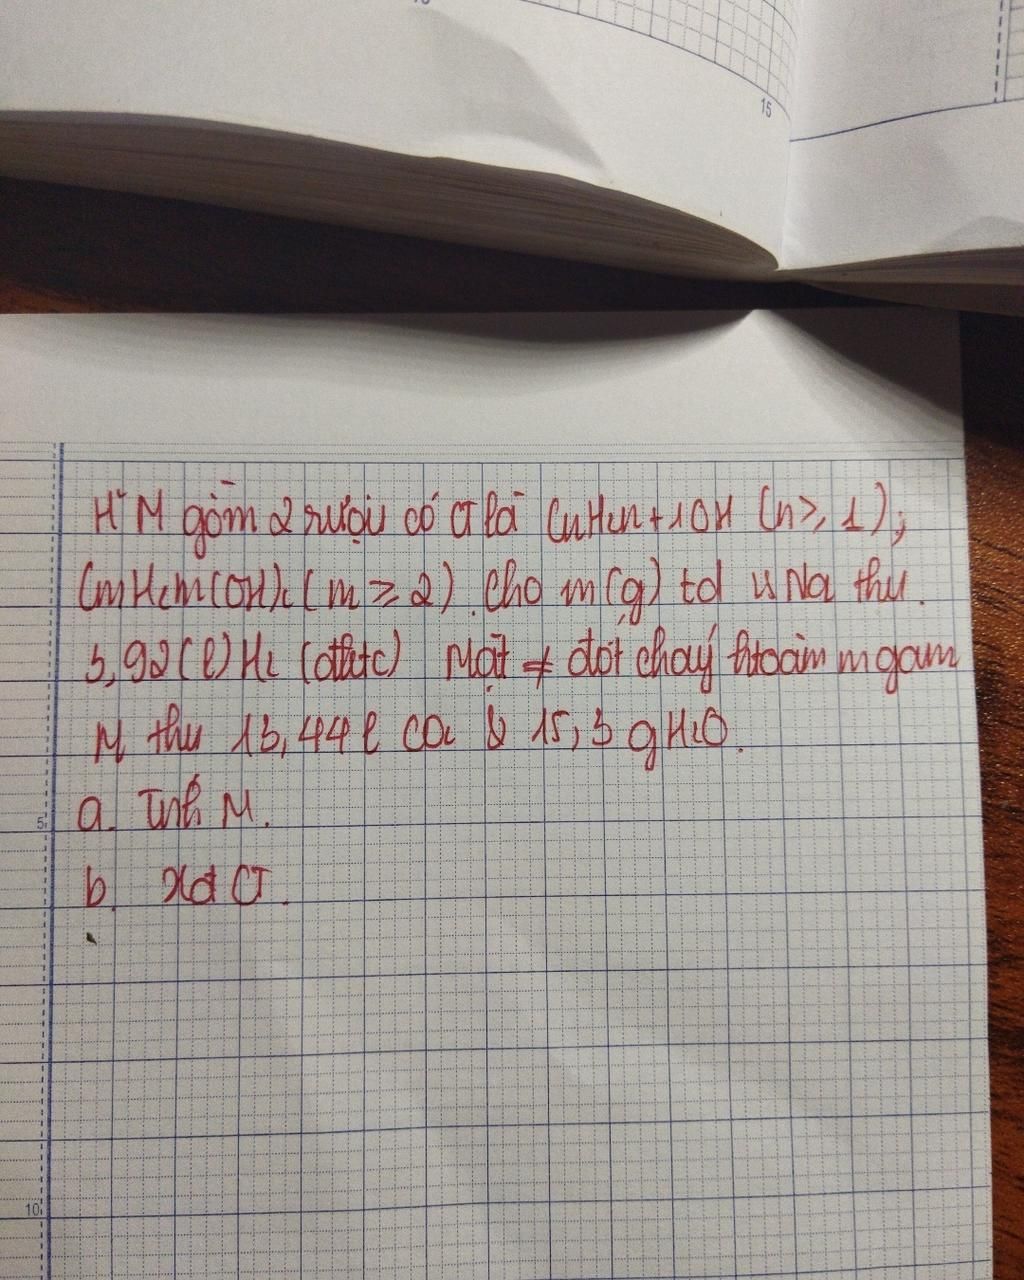 15
H² M gồm 2 rượu có CT là CnH2n+1OH (n≥1);
CmH2m(OH)2 (m≥2). Cho m(g) td vs Na thu.
3,92(l)H2 (đktc) Mặt ≠ đốt cháy htoàn m gam
M thu 13,44l CO2 & 15,3 gH2O.
a. Tính M.
5
b. Xđ CT.
10